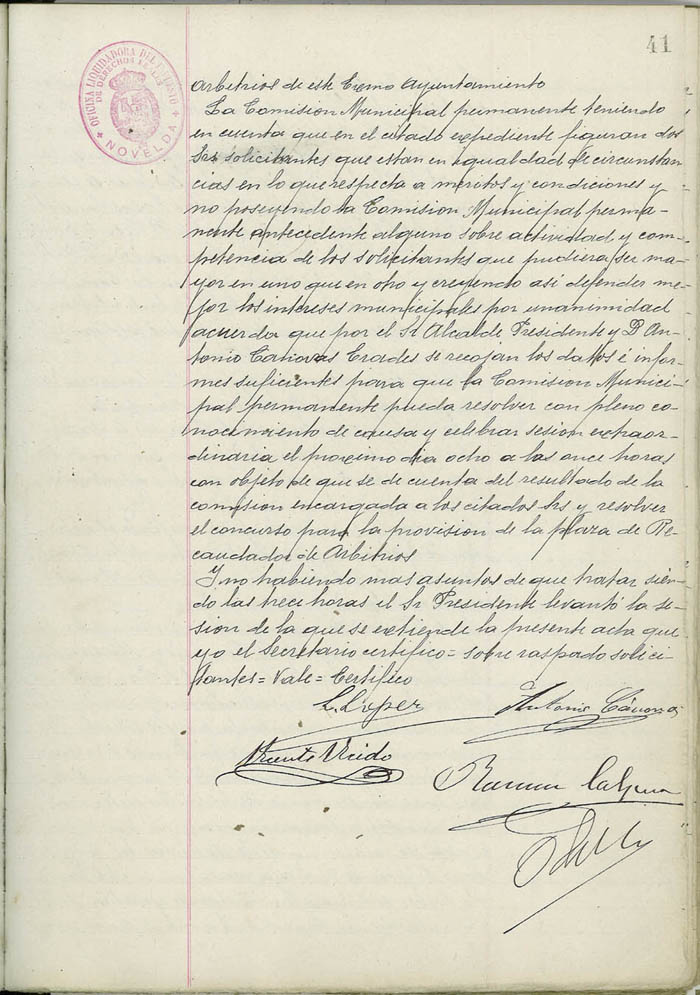 41
OFICINA LIQUIDADORA DEL
DE DERECHOS REALES
NOVELDA
arbitrios de este Excmo Ayuntamiento
La Comision Municipal permanente teniendo
en cuenta que en el citado expediente figuran dos
Srs solicitantes que estan en igualdad de circunstan
cias en lo que respecta a meritos y condiciones y
no poseyendo la Comision Municipal perma-
nente antecedente alguno sobre actividad y com
petencia de los solicitantes que pudiera ser ma
yor en uno que en otro y creyendo así defender me
jor los intereses municipales por unanimidad
acuerda que por el Sr Alcalde Presidente y D An-
tonio Cánovas Erades se recojan los datos é infor
mes suficientes para que la Comision Munici-
pal permanente pueda resolver con pleno co-
nocimiento de causa y celebrar sesion extraor-
dinaria el proximo dia ocho a las once horas
con objeto de que se de cuenta del resultado de la
comision encargada a los citados Srs y resolver
el concurso para la provision de la plaza de Re-
caudador de Arbitrios
Y no habiendo mas asuntos de que tratar sien-
do las trece horas el Sr Presidente levantó la se-
sion de la que se extiende la presente acta que
yo el Secretario certifico = sobre raspado solici-
tantes = Vale = Certifico
L. López
Antonio Cánovas
Vicente
Ramon